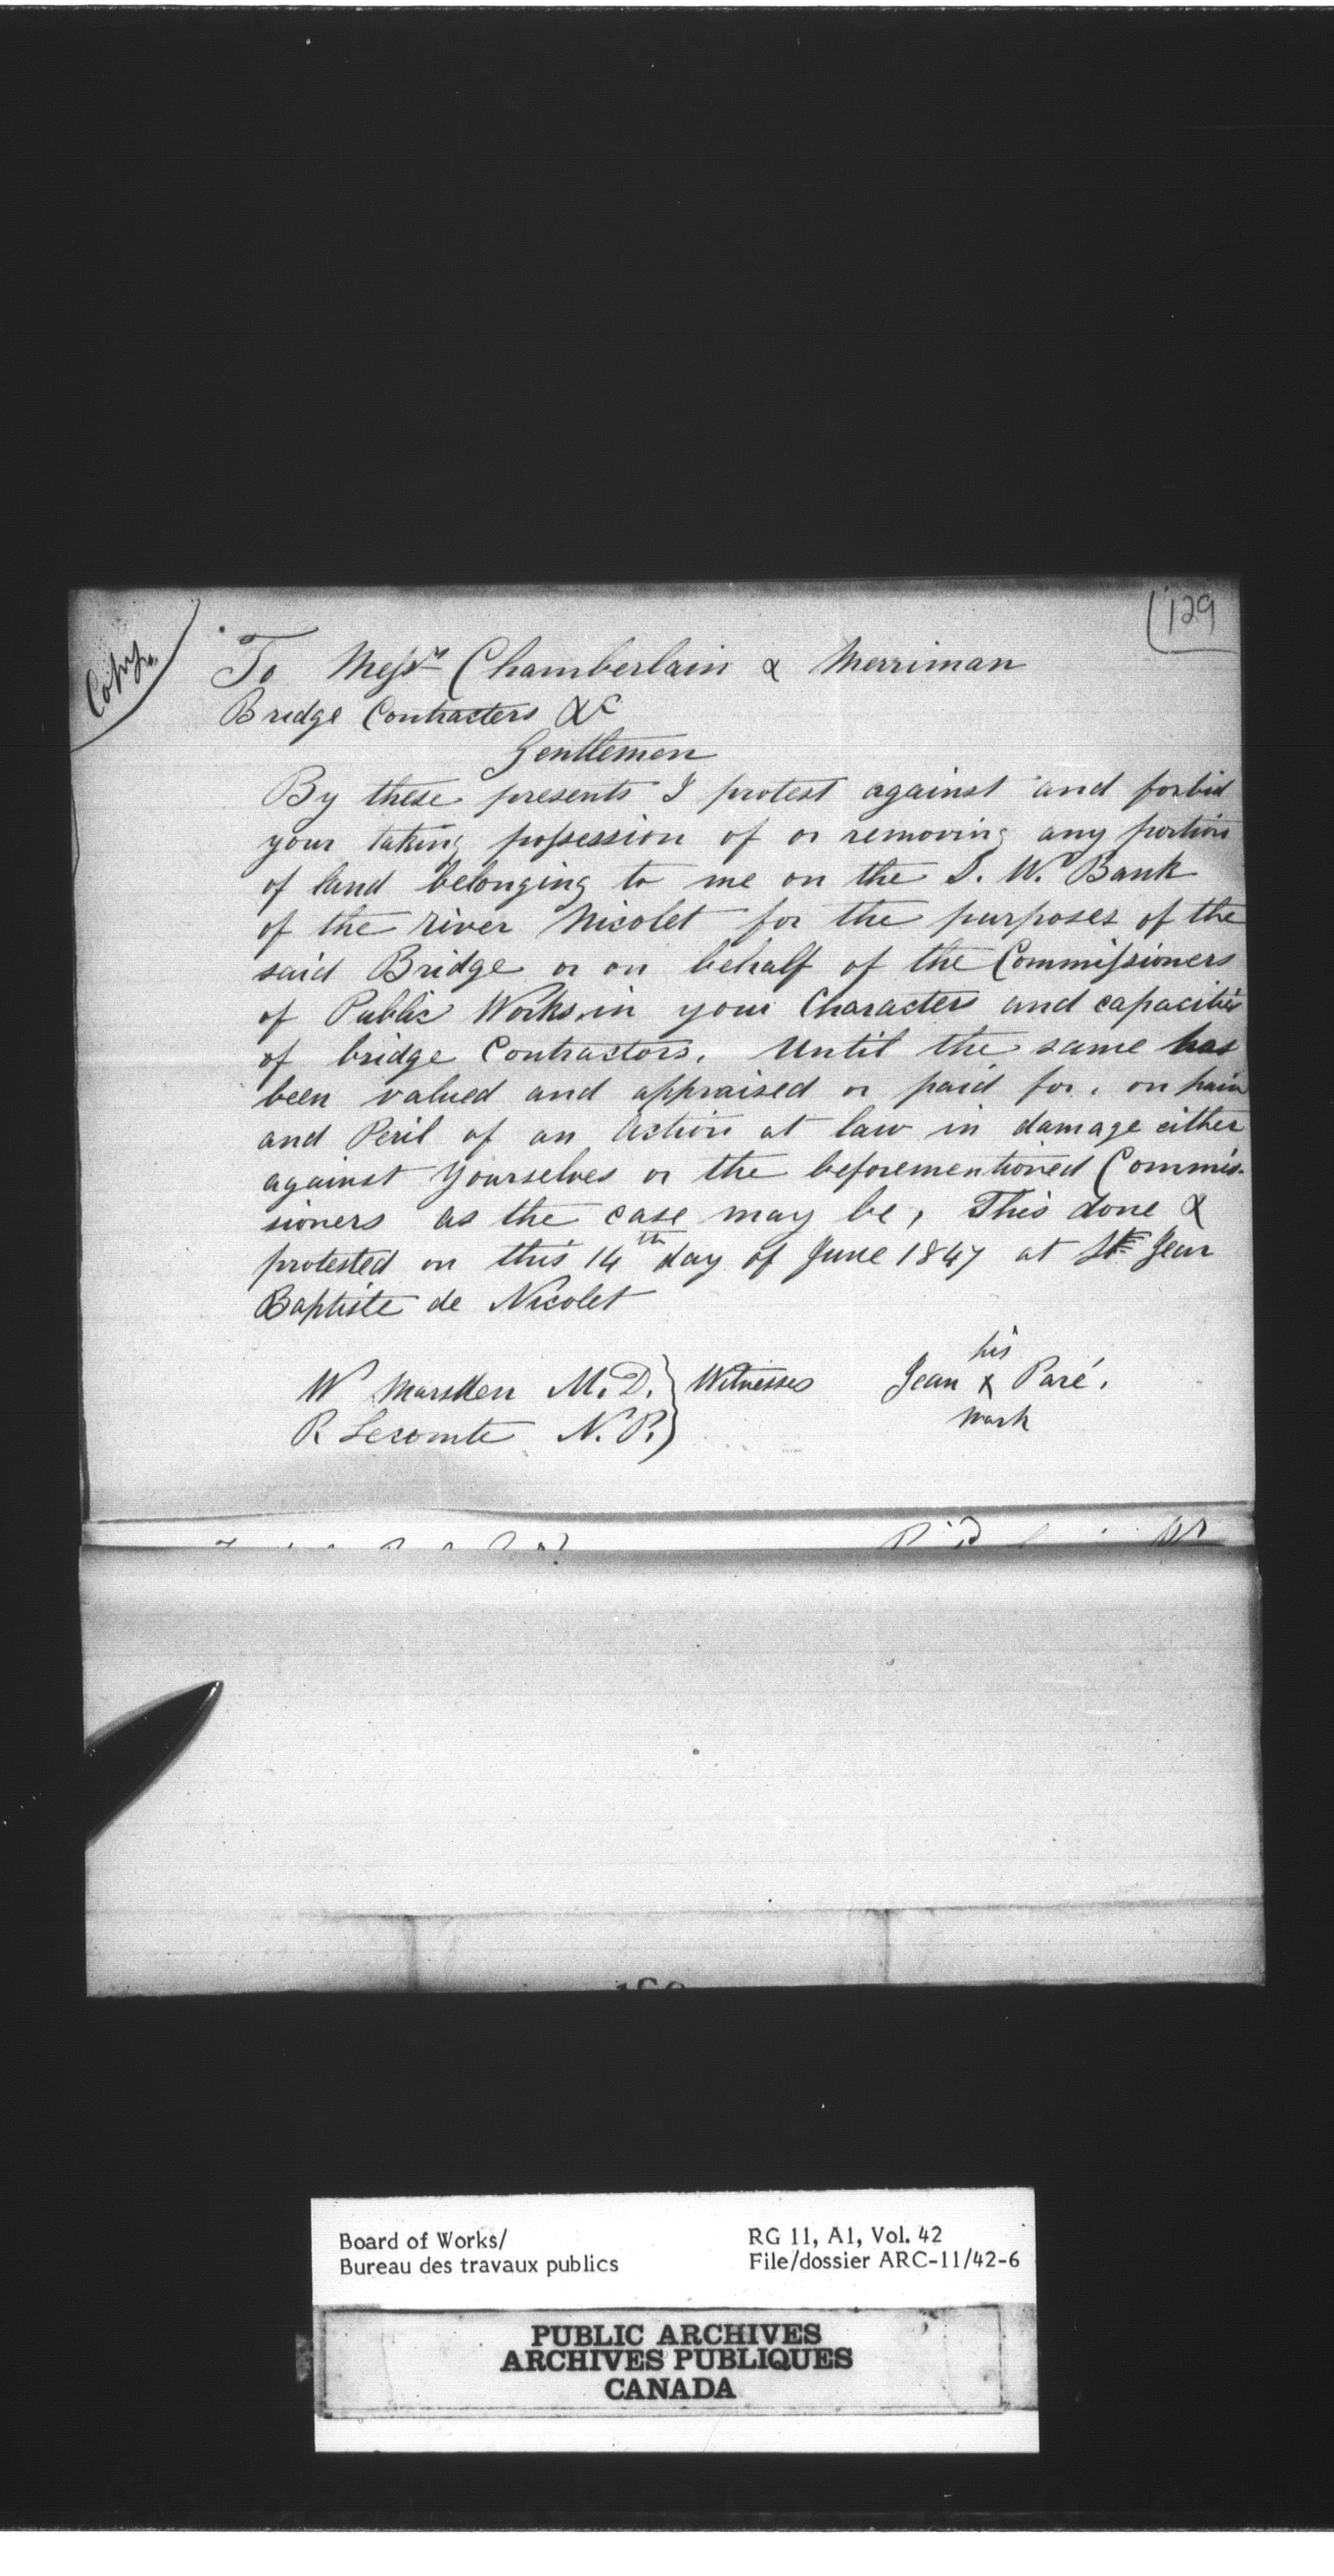 129
Copy.
To Messrs Chamberlain & Merriman
Bridge Contracters &c
Gentlemen
By these presents I protest against and forbid
your taking possession of or removing any portion
of land belonging to me on the S. W. Bank
of the river Nicolet for the purposes of the
said Bridge or on behalf of the Commissioners
of Public Works, in your Characters and capacities
of bridge Contractors. Until the same has
been valued and appraised or paid for, on pain
and Peril of an action at law in damage either
against yourselves or the beforementioned Commis-
sioners as the case may be, This done &
protested on this 14th day of June 1847 at St Jean
Baptiste de Nicolet
W Marsden M.D. } Witnesses
R Lecomte N.P. }
his
Jean X Paré.
mark
Board of Works/
Bureau des travaux publics
RG 11, A1, Vol. 42
File/dossier ARC-11/42-6
PUBLIC ARCHIVES
ARCHIVES PUBLIQUES
CANADA